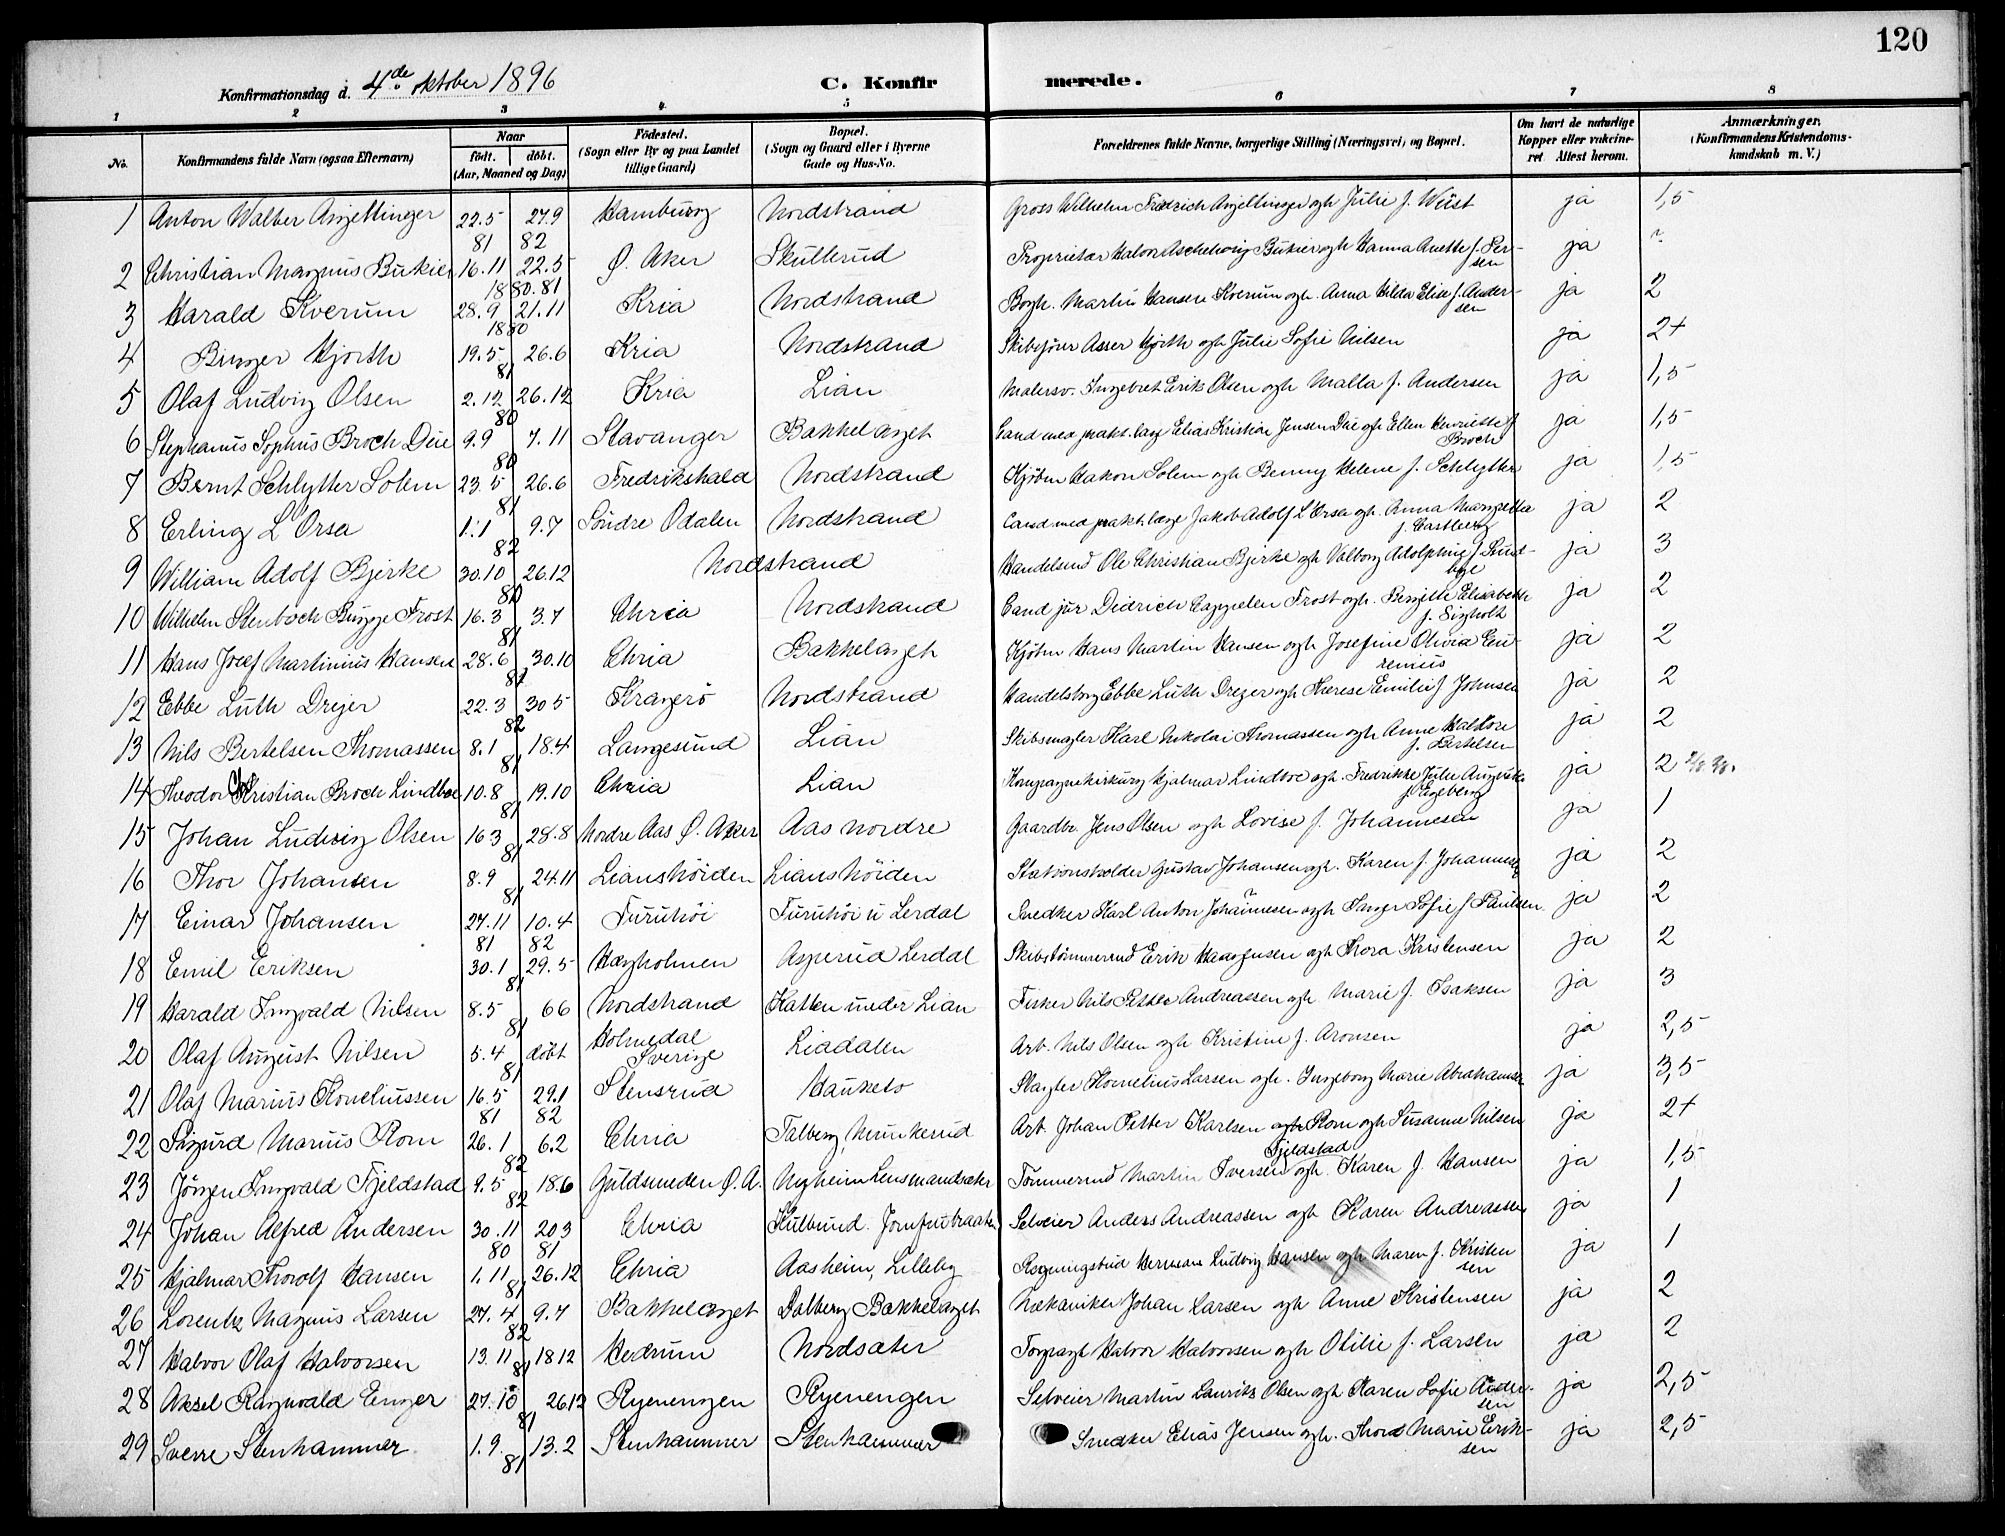 120
Konfirmationsdag d. 4de oktober 1896
C. Konfirmerede.
1 2 3 4 5 6 7 8
No. Konfirmandens fulde Navn (ogsaa Efternavn) Naar født. døbt. (Aar, Maaned og Dag) Fødested. (Sogn eller By og paa Landet tillige Gaard) Bopæl. (Sogn og Gaard eller i Byerne Gade og Hus-No. Forældrenes fulde Navne, borgerlige Stilling (Næringsvei) og Bopæl. Om havt de naturlige Kopper eller vakcineret Attest herom. Anmærkninger. (Konfirmandens Kristendomskundskab m. V.)
1 Anton Walter Angeltinger 22.5 81 27.9 82 Hamburg Nordstrand Gross Wilhelm Fredrich Angeltinger ogh Julie f. Wüst ja 1,5
2 Christian Magnus Bukier 16.11 1880 22.5 81 Ø. Aker Skullerud Proprietær Halvor Aschehoug Bukier ogh Hanna Anette f. Persen ja
3 Harald Kverum 28.9 21.11 1880 Kria Nordstrand Bogh. Martin Hansen Kverum ogh. Anna Hilda Elise f. Andersen ja 2
4 Birger Hjorth 19.5 26.6 81 Kria Nordstrand Skibsfører Asser Hjorth ogh Julie Sofie Nilsen ja 2+
5 Olaf Ludvig Olsen 2.12 26.12 80 Kria Lian Malersv. Ingebret Erik Olsen ogh Malla f. Andersen ja 1,5
6 Stephanus Sophus Broch Due 9.9 7.11 80 Stavanger Bakkelaget Cand med prakt. læge Elias Kristian Jensen Due ogh Ellen Henriette f Broch ja 1,5
7 Bernt Schlytter Solem 23.5 26.6 81 Fredrikshald Nordstrand Kjøbm Hakon Solem ogh Benny Helene f. Schlytter ja 1,5
8 Erling L'Orsa 1.1 9.7 82 Søndre Odalen Nordstrand Cand med prakt. læge Jakob Adolf L'Orsa gh. Anna Margretha f. Castberg ja 2
9 William Adolf Bjerke 30.10 26.12 80 Nordstrand Handelsmd Ole Christian Bjerke ogh Valborg Adolphine f. Sundbye ja 3
10 Wilhelm Stenboch Bugge Frost 16.3 3.7 81 Chria Nordstrand Cand jur Didrich Cappelen Frost ogh. Birgitte Elisabeth f. Sigholt ja 2
11 Hans Josef Martinius Hansen 28.6 30.10 81 Chria Bakkelaget Kjøbm Hans Martin Hansen ogh Josefine Olivia Eurenius ja 2
12 Ebbe Luth Dreyer 22.3 30 5 82 Kragerø Nordstrand Handelsborg Ebbe Luth Dreyer ogh Therese Emilie f. Johnsen ja 2
13 Nils Bertelsen Thomassen 8.1 18.4 81 Langesund Lian Skibsmægler Karl Nikolai Thomassen ogh Anne Halkore f. Bertelsen ja 2
14 Theodor Christian Broch Lindboe 10.8 19.10 81 Chria Lian Kompagnikirurg Hjalmar Lindboe ogh. Fredrikke Julie Augusta f. Engeberg ja 2
15 Johan Ludvig Olsen 16 3 28.8 81 Nordre Aas Ø. Aker Aas nordre Gaardbr. Jens Olsen ogh Lovise f. Johannesen ja 1
16 Thor Johansen 8.9 24.11 81 Lianshøiden Lianshøiden Stationsholder Gustav Johansen ogh. Karen f. Johannesen ja 2
17 Einar Johansen 27.11 81 10.4 82 Furuhøi Furuhøi u Lerdal Snedker Karl Anton Johannesen ogh Inger Sofie f Paulsen ja 2
18 Emil Eriksen 30.1 29.5 81 Hægholmen Asperud Lerdal Skibstømmermd Erik Haagensen ogh Thora Kristensen ja 2
19 Harald Ingvald Nilsen 8.5 6 6 81 Nordstrand Katten under Lian Fisker Nils Petter Andreassen ogh Marie f. Isaksen ja 3
20 Olaf August Nilsen 5.4 81 døbt Holmedal Sverige Liadalen Arb. Nils Olsen ogh Kristine f. Aronsen ja 2,5
21 Olaf Marius Korneliussen 16.5 81 29.1 82 Stensrud Hauketo Slagter Kornelius Larsen ogh. Ingeborg Marie Abrahamsen ja 3,5
22 Sigurd Marius Rom 26.1 6.2 82 Chria Talberg, Munkerud Arb. Johan Petter Karlsen Rom ogh Susanne Nilsen ja 2+
23 Jørgen Ingvald Fjeldstad 9.5 18.6 82 Guldsmeden Ø. A. Nyheim Lensmandsæter Tømmermd Martin Iversen Fjeldstad ogh. Karen f. Hansen ja 1,5
24 Johan Alfred Andersen 30.11 80 20 3 81 Chria Kulbund. Jomfrubraaten Selveier Anders Andreassen ogh Karen Andreassen ja 1
25 Hjalmar Thorolf Hansen 1.11 26.12 81 Chria Aasheim, Lilleby Regningsbud Herman Ludvig Hansen ogh Maren f. Kristensen ja 1
26 Lorentz Magnus Larsen 27.4 9.7 82 Bakkelaget Dalberg Bakkelaget Mekaniker Johan Larsen ogh Anne Kristensen ja 2
27 Halvor Olaf Halvorsen 13.11 18 12 81 Hedrum Nordsæter Torpagt Halvor Halvorsen ogh Otilie f. Larsen ja 2
28 Aksel Ragnvald Enger 27.10 26.12 81 Ryenengen Ryenengen Selveier Martin Lauritz Olsen ogh Karen Sofie Andersen ja 2,5
29 Sverre Stenhammer 1.9. 13.2 81 Stenhammer Stenhammer Snedker Elias Jensen ogh. Thora Marie Eriksen ja 2,5